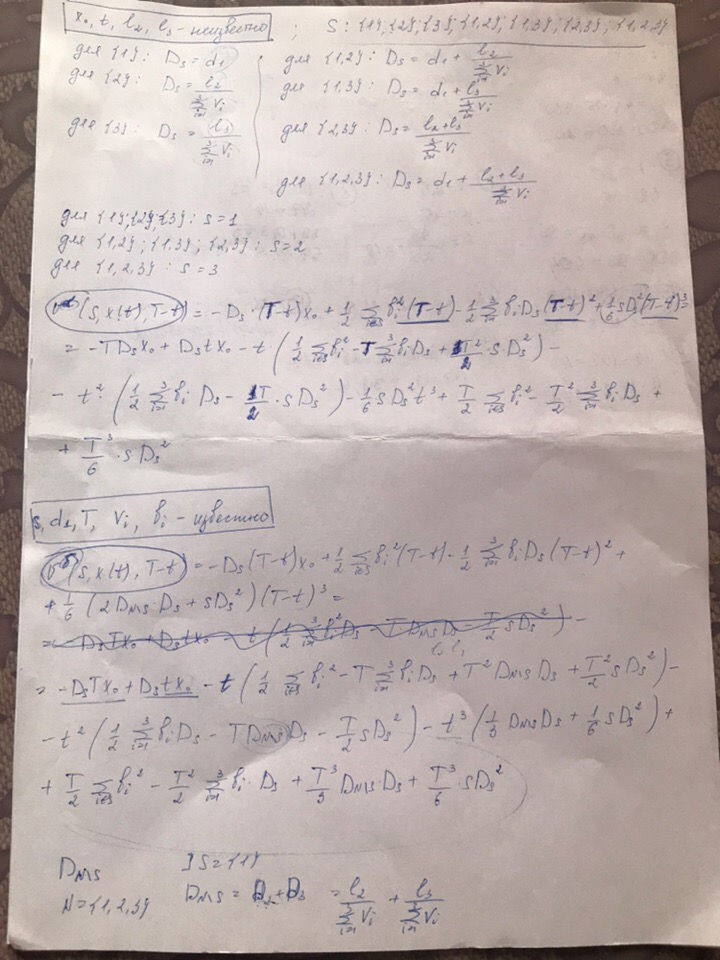 x₀, t, l₂, l₃ - неизвестно ; S: {1}; {2}; {3}; {1,2}; {1,3}; {2,3}; {1,2,3}
для {1}: Dₛ = d₁
для {2}: Dₛ = l₂ / ∑³ᵢ₌₁ Vᵢ
для {3}: Dₛ = l₃ / ∑³ᵢ₌₁ Vᵢ
для {1,2}: Dₛ = d₁ + l₂ / ∑³ᵢ₌₁ Vᵢ
для {1,3}: Dₛ = d₁ + l₃ / ∑³ᵢ₌₁ Vᵢ
для {2,3}: Dₛ = (l₂ + l₃) / ∑³ᵢ₌₁ Vᵢ
для {1,2,3}: Dₛ = d₁ + (l₂ + l₃) / ∑³ᵢ₌₁ Vᵢ
для {1}; {2}; {3}: s = 1
для {1,2}; {1,3}; {2,3}: s = 2
для {1,2,3}: s = 3
(S, x(t), T-t) = -Dₛ·(T-t)x₀ + 1/2 ∑ᵢ∈ₛ bᵢ²(T-t) - 1/2 ∑³ᵢ₌₁ bᵢDₛ(T-t)² + 1/6 sDₛ²(T-t)³ =
= -TDₛx₀ + Dₛtx₀ - t·(1/2 ∑ᵢ∈ₛ bᵢ² - T∑³ᵢ₌₁ bᵢDₛ + T²/2·sDₛ²) -
- t²·(1/2 ∑³ᵢ₌₁ bᵢ Dₛ - T/2·sDₛ²) - 1/6 sDₛ²t³ + T/2 ∑ᵢ∈ₛ bᵢ² - T²/2 ∑³ᵢ₌₁ bᵢ Dₛ +
+ T³/6·sDₛ²
s, d₁, T, Vᵢ, bᵢ - известно
(S, x(t), T-t) = -Dₛ(T-t)x₀ + 1/2 ∑ᵢ∈ₛ bᵢ²(T-t) - 1/2 ∑³ᵢ₌₁ bᵢDₛ(T-t)² +
+ 1/6 (2D_N\S·Dₛ + sDₛ²)(T-t)³ =
= -DₛTx₀ + Dₛtx₀ - t(1/2 ∑ᵢ∈ₛ bᵢ² - T∑³ᵢ₌₁ bᵢDₛ + T²D_N\S Dₛ + T²/2 sDₛ²) -
- t²(1/2 ∑³ᵢ₌₁ bᵢDₛ - TD_N\S Dₛ - T/2 sDₛ²) - t³(1/3 D_N\S Dₛ + 1/6 sDₛ²) +
+ T/2 ∑ᵢ∈ₛ bᵢ² - T²/2 ∑³ᵢ₌₁ bᵢ·Dₛ + T³/3 D_N\S·Dₛ + T³/6·sDₛ²
D_N\S
N = {1,2,3}
S = {1}
D_N\S = D₂ + D₃ = l₂ / ∑³ᵢ₌₁ Vᵢ + l₃ / ∑³ᵢ₌₁ Vᵢ